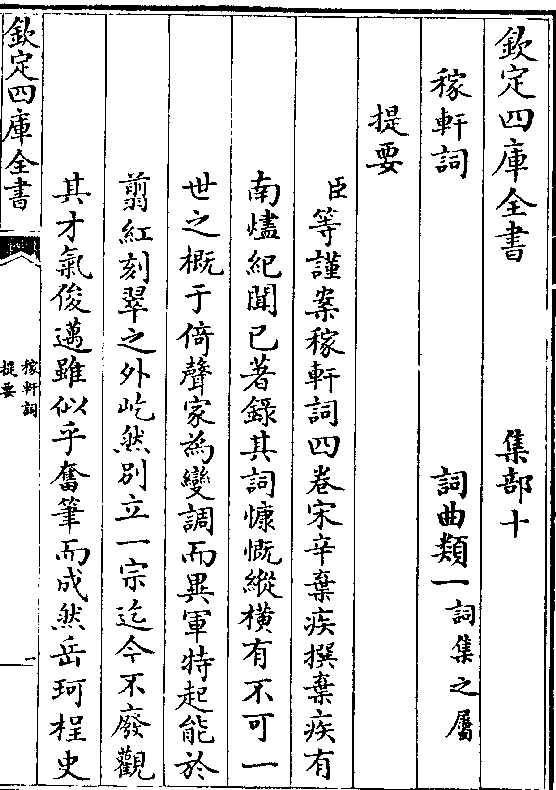 欽定四庫全書 集部十
稼軒詞 詞曲類一 詞集之屬
提要
臣等謹案稼軒詞四卷宋辛棄疾撰棄疾有
南燼紀聞已著錄其詞慷慨縱橫有不可一
世之概于倚聲家為變調而異軍特起能於
翦紅刻翠之外屹然別立一宗迄今不廢觀
其才氣俊邁雖似乎奮筆而成然岳珂桯史
欽定四庫全書
稼軒詞
提要
一